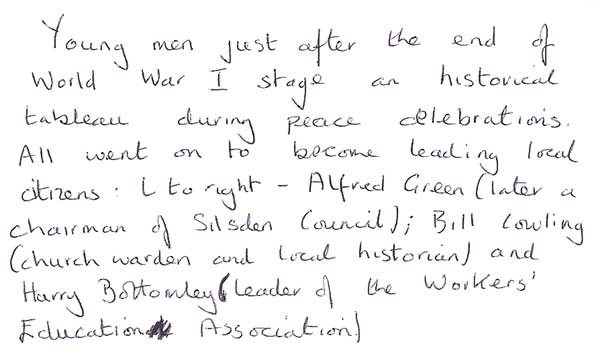 Young men just after the end of
World War I stage an historical
tableau during peace celebrations.
All went on to become leading local
citizens: L to right - Alfred Green (later a
chairman of Silsden Council); Bill Cowling
(church warden and local historian) and
Harry Bottomley (leader of the Workers'
Education Association)